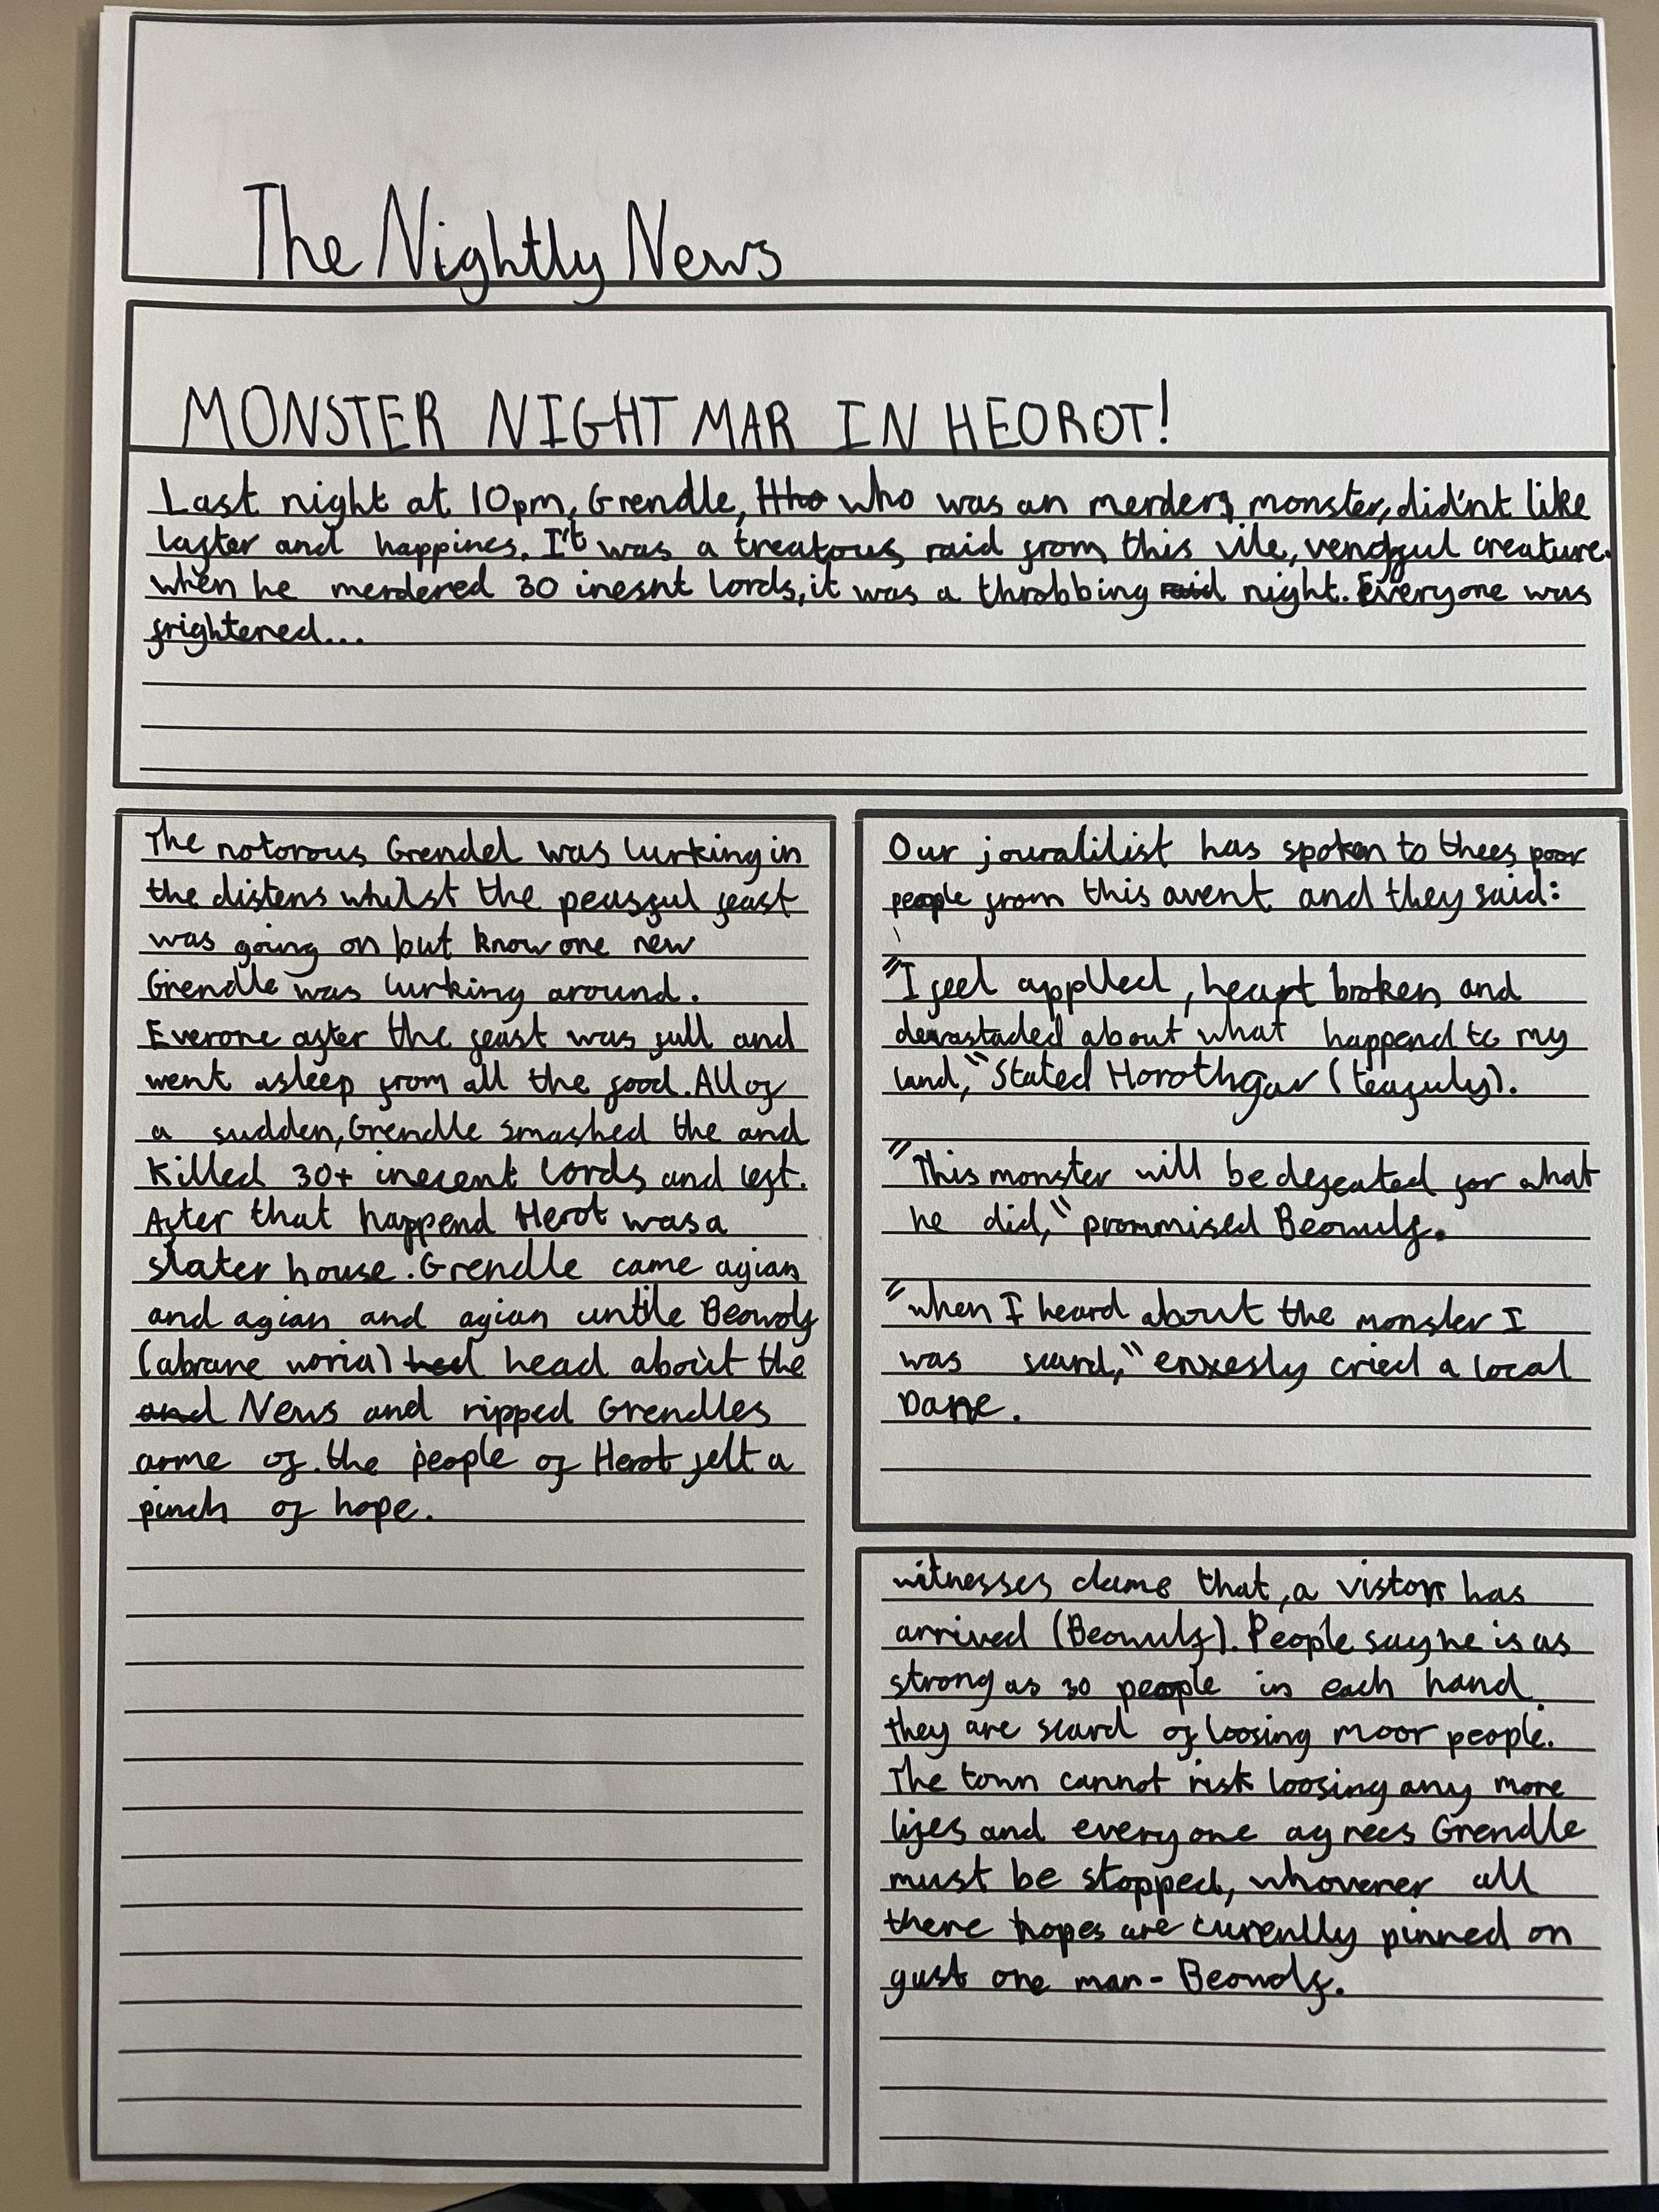 The Nightly News
MONSTER NIGHT MAR IN HEOROT!
Last night at 10pm, Grendle, who was an merders monster, did'nt like
lafter and happines. It was a treatous raid from this vile, vengful creature.
when he merdered 30 inesnt lords, it was a throbbing night. Everyone was
frightened...
The notorous Grendel was lurking in
the distens whilst the peasful feast
was going on but know one new
Grendle was lurking around.
Everone after the feast was full and
went asleep from all the food. All of
a sudden, Grendle smashed the and
killed 30+ inecent lords and left.
After that happend Herot was a
slater house. Grendle came agian
and agian and agian untile Beowolf
(a brave woria) head about the
News and ripped Grendles
arme of. the people of Herot felt a
pinch of hope.
Our jouralilist has spoken to thees poor
people from this avent and they said:
"I feel applled, heart broken and
devastaded about what happend to my
land," Stated Horothgar (teafuly).
"This monster will be defeated for what
he did," prommised Beowulf.
"when I heard about the monster I
was scard," enxesly cried a local
Dane.
witnesses clame that, a vistor has
arrived (Beowulf). People say he is as
strong as 30 people in each hand.
they are scard of loosing moor people.
The town cannot risk loosing any more
lifes and everyone agrees Grendle
must be stopped, whovener all
there hopes are curenlly pinned on
gust one man- Beowolf.